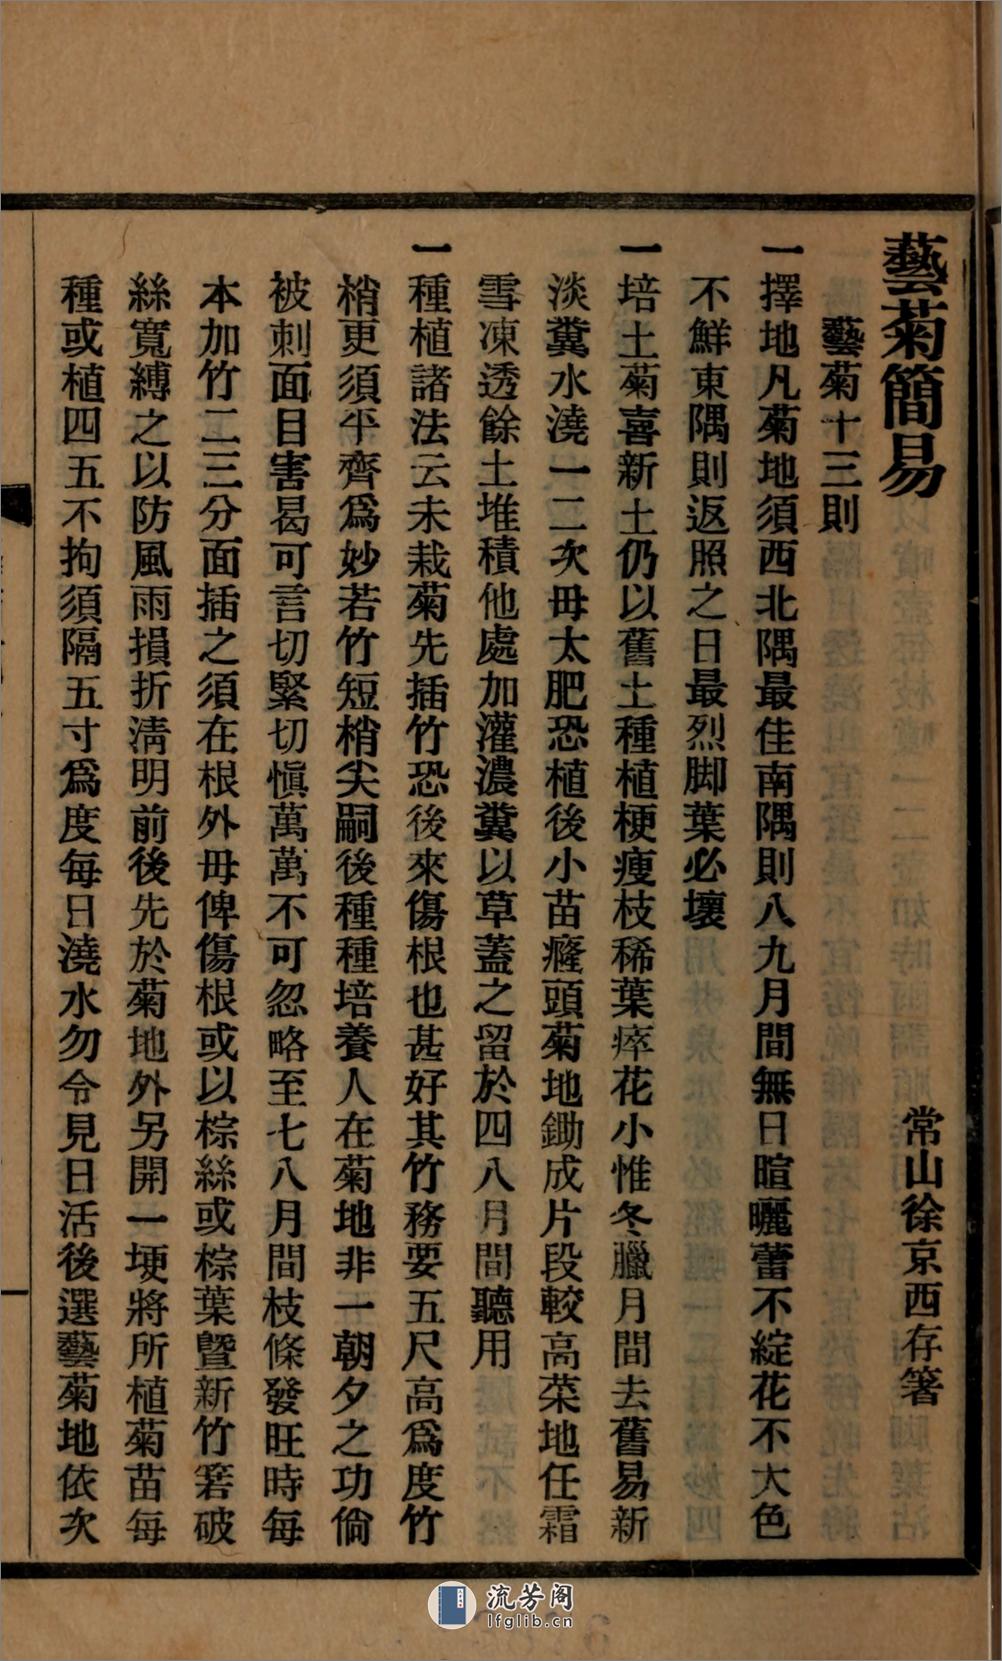 藝菊簡易
常山徐京西存箸
藝菊十三則
一擇地凡菊地須西北隅最佳南隅則八九月間無日暄曬蕾不綻花不大色
不鮮東隅則返照之日最烈脚葉必壞
一培土菊喜新土仍以舊土種植梗瘦枝稀葉瘁花小惟冬臘月間去舊易新
淡糞水澆一二次毋太肥恐植後小苗癃頭菊地鋤成片段較高菜地任霜
雪凍透餘土堆積他處加灌濃糞以草蓋之留於四八月間聽用
一種植諸法云未栽菊先插竹恐後來傷根也甚好其竹務要五尺高爲度竹
梢更須平齊爲妙若竹短梢尖嗣後種種培養人在菊地非一朝夕之功倘
被刺面目害曷可言切緊切愼萬萬不可忽略至七八月間枝條發旺時每
本加竹二三分面插之須在根外毋俾傷根或以棕絲或棕葉曁新竹箬破
絲寬縛之以防風雨損折淸明前後先於菊地外另開一埂將所植菊苗每
種或植四五不拘須隔五寸爲度每日澆水勿令見日活後選藝菊地依次
流芳阁
lfglib.cn